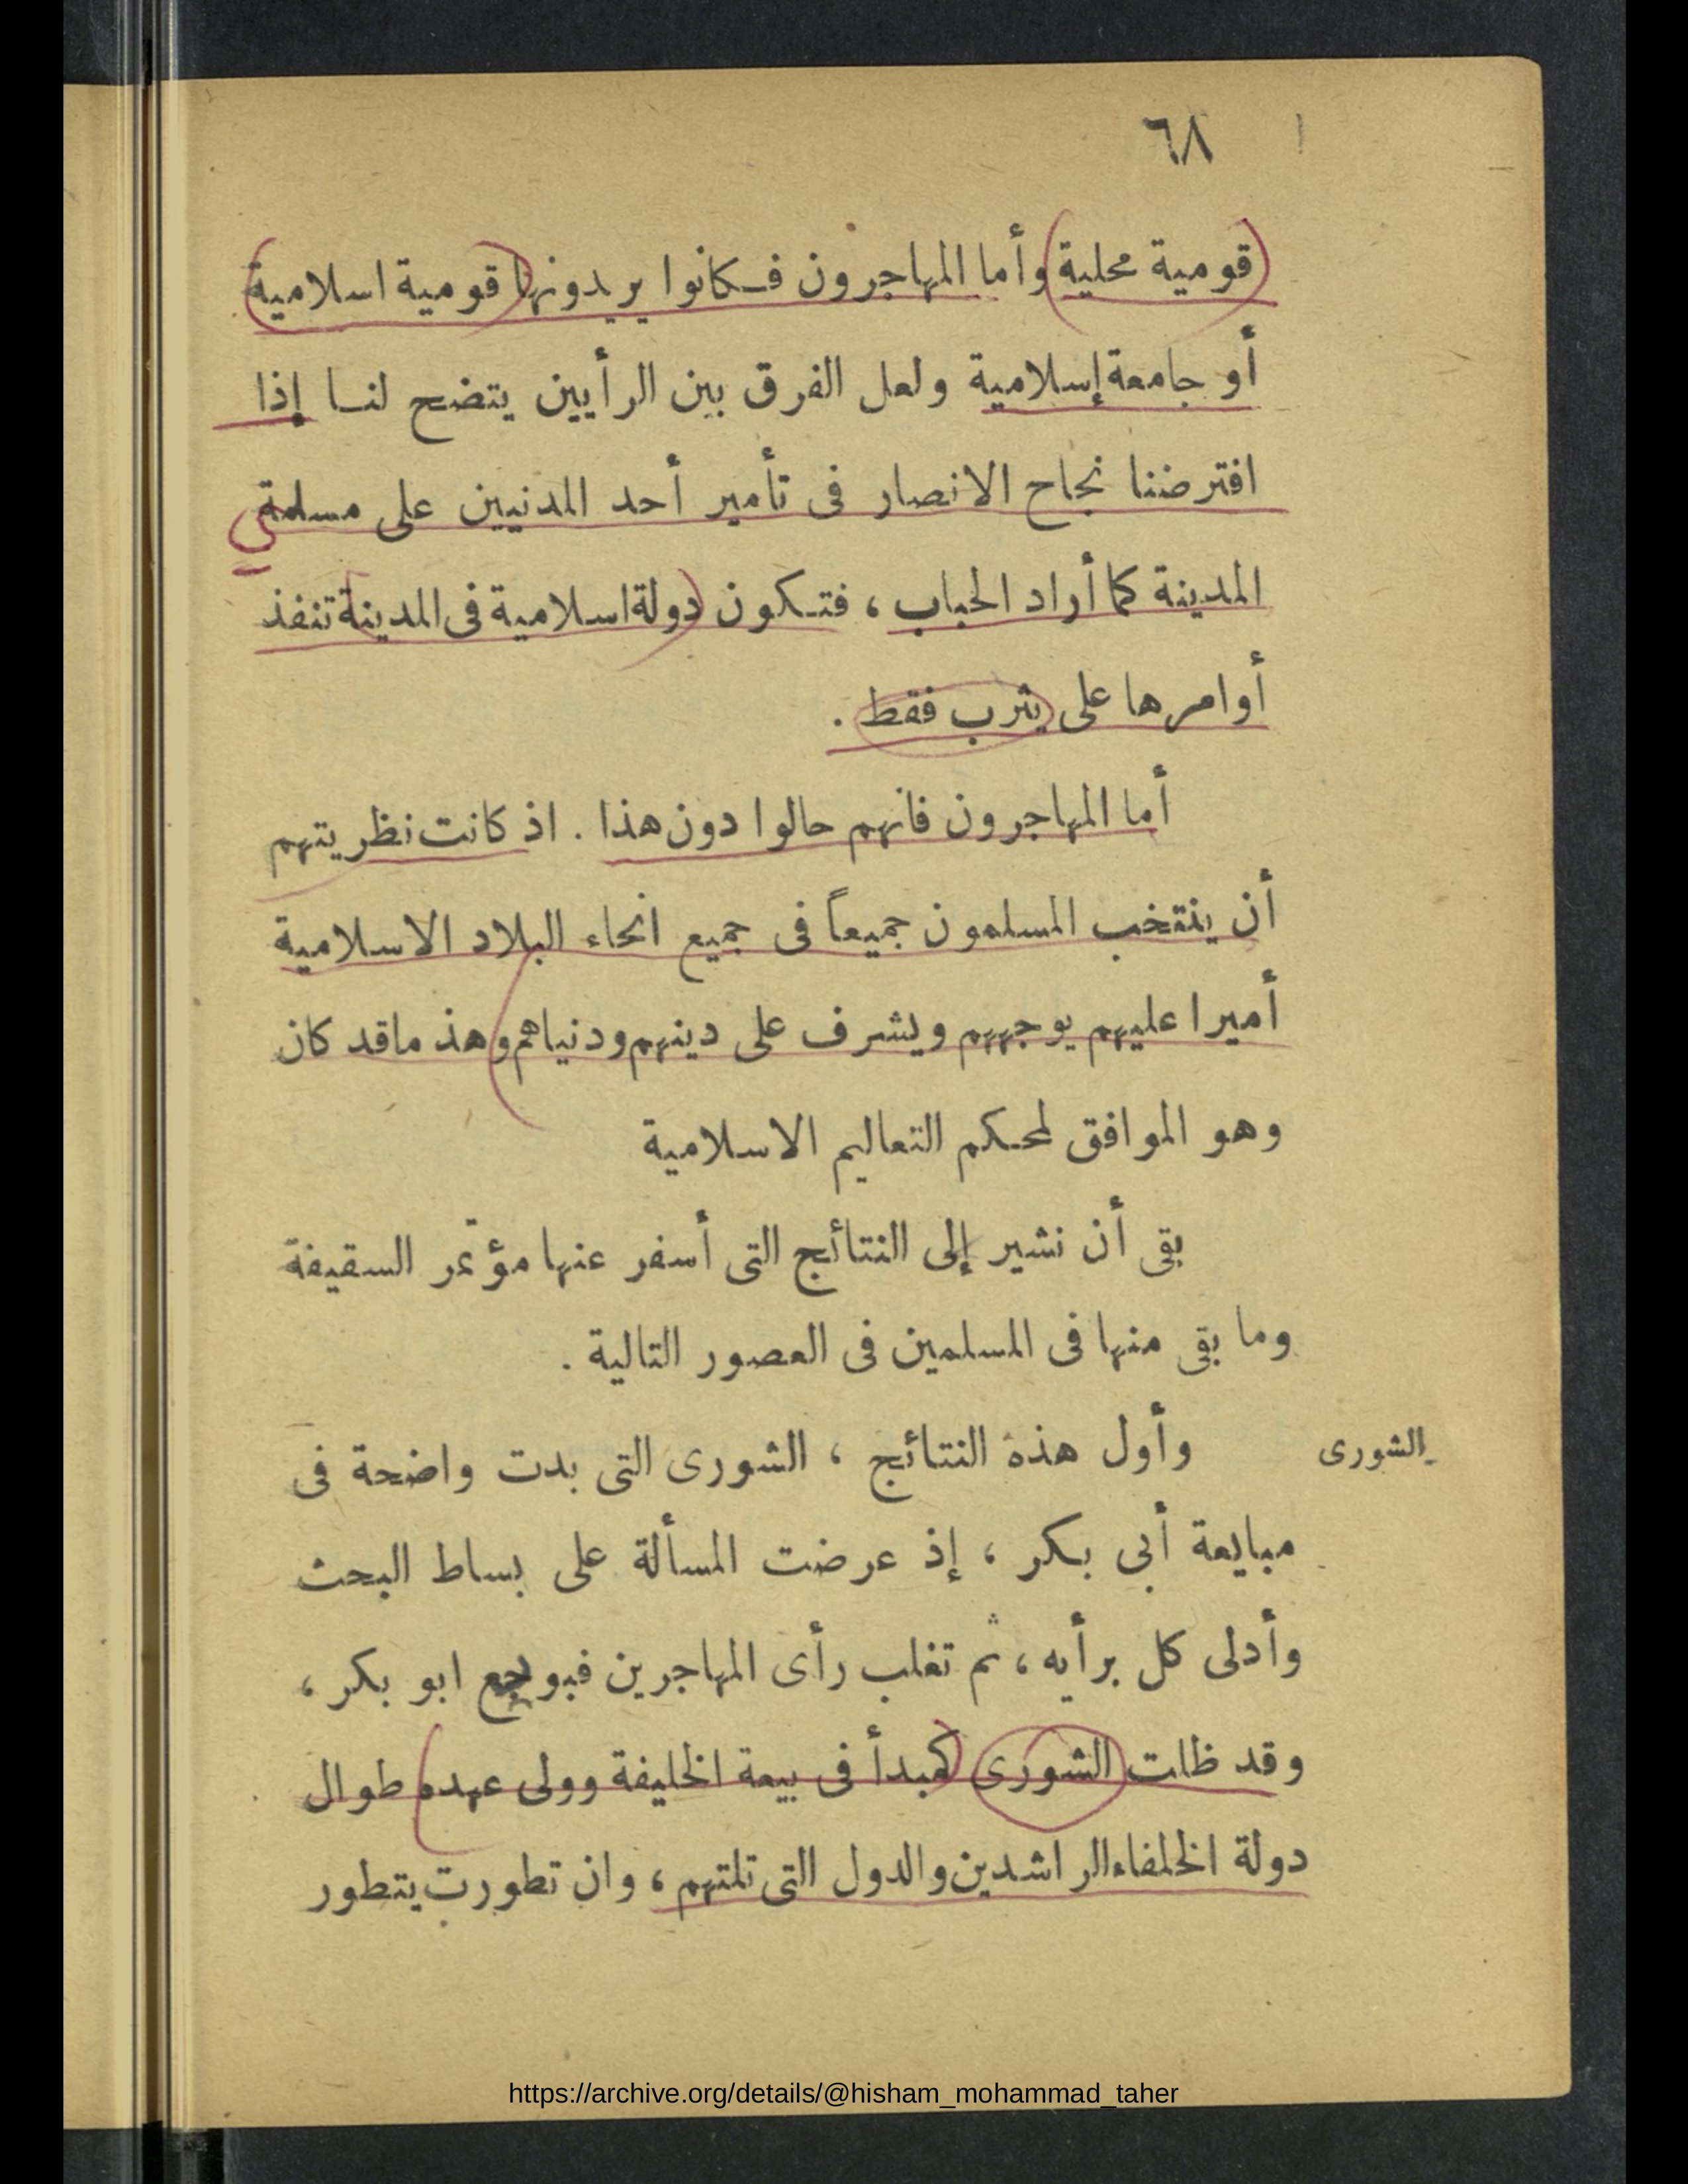 ٦٨
قومية محلية وأما المهاجرون فكانوا يريدونها قومية اسلامية
أو جامعة إسلامية ولعل الفرق بين الرأيين يتضح لنا إذا
افترضنا نجاح الانصار فى تأمير أحد المدنيين على مسلمة
المدينة كما أراد الحباب ، فتكون دولة اسلامية فى المدينة تنفذ
أوامرها على يثرب فقط .
أما المهاجرون فانهم حالوا دون هذا . اذ كانت نظريتهم
أن ينتخب المسلمون جميعاً فى جميع انحاء البلاد الاسلامية
أميرا عليهم يوجههم ويشرف على دينهم ودنياهم وهذ ماقد كان
وهو الموافق لمحكم التعاليم الاسلامية
بقى أن نشير إلى النتائج التى أسفر عنها مؤتمر السقيفة
وما بقى منها فى المسلمين فى العصور التالية .
الشورى
وأول هذه النتائج ، الشورى التى بدت واضحة فى
مبايعة أبى بكر ، إذ عرضت المسألة على بساط البحث
وأدلى كل برأيه ، ثم تغلب رأى المهاجرين ابو بكر ،
وقد ظلت الشورى كمبدأ فى بيعة الخليفة وولى عهده طوال
دولة الخلفاء الراشدين والدول التى تلتهم ، وان تطورت يتطور
https://archive.org/details/@hisham_mohammad_taher